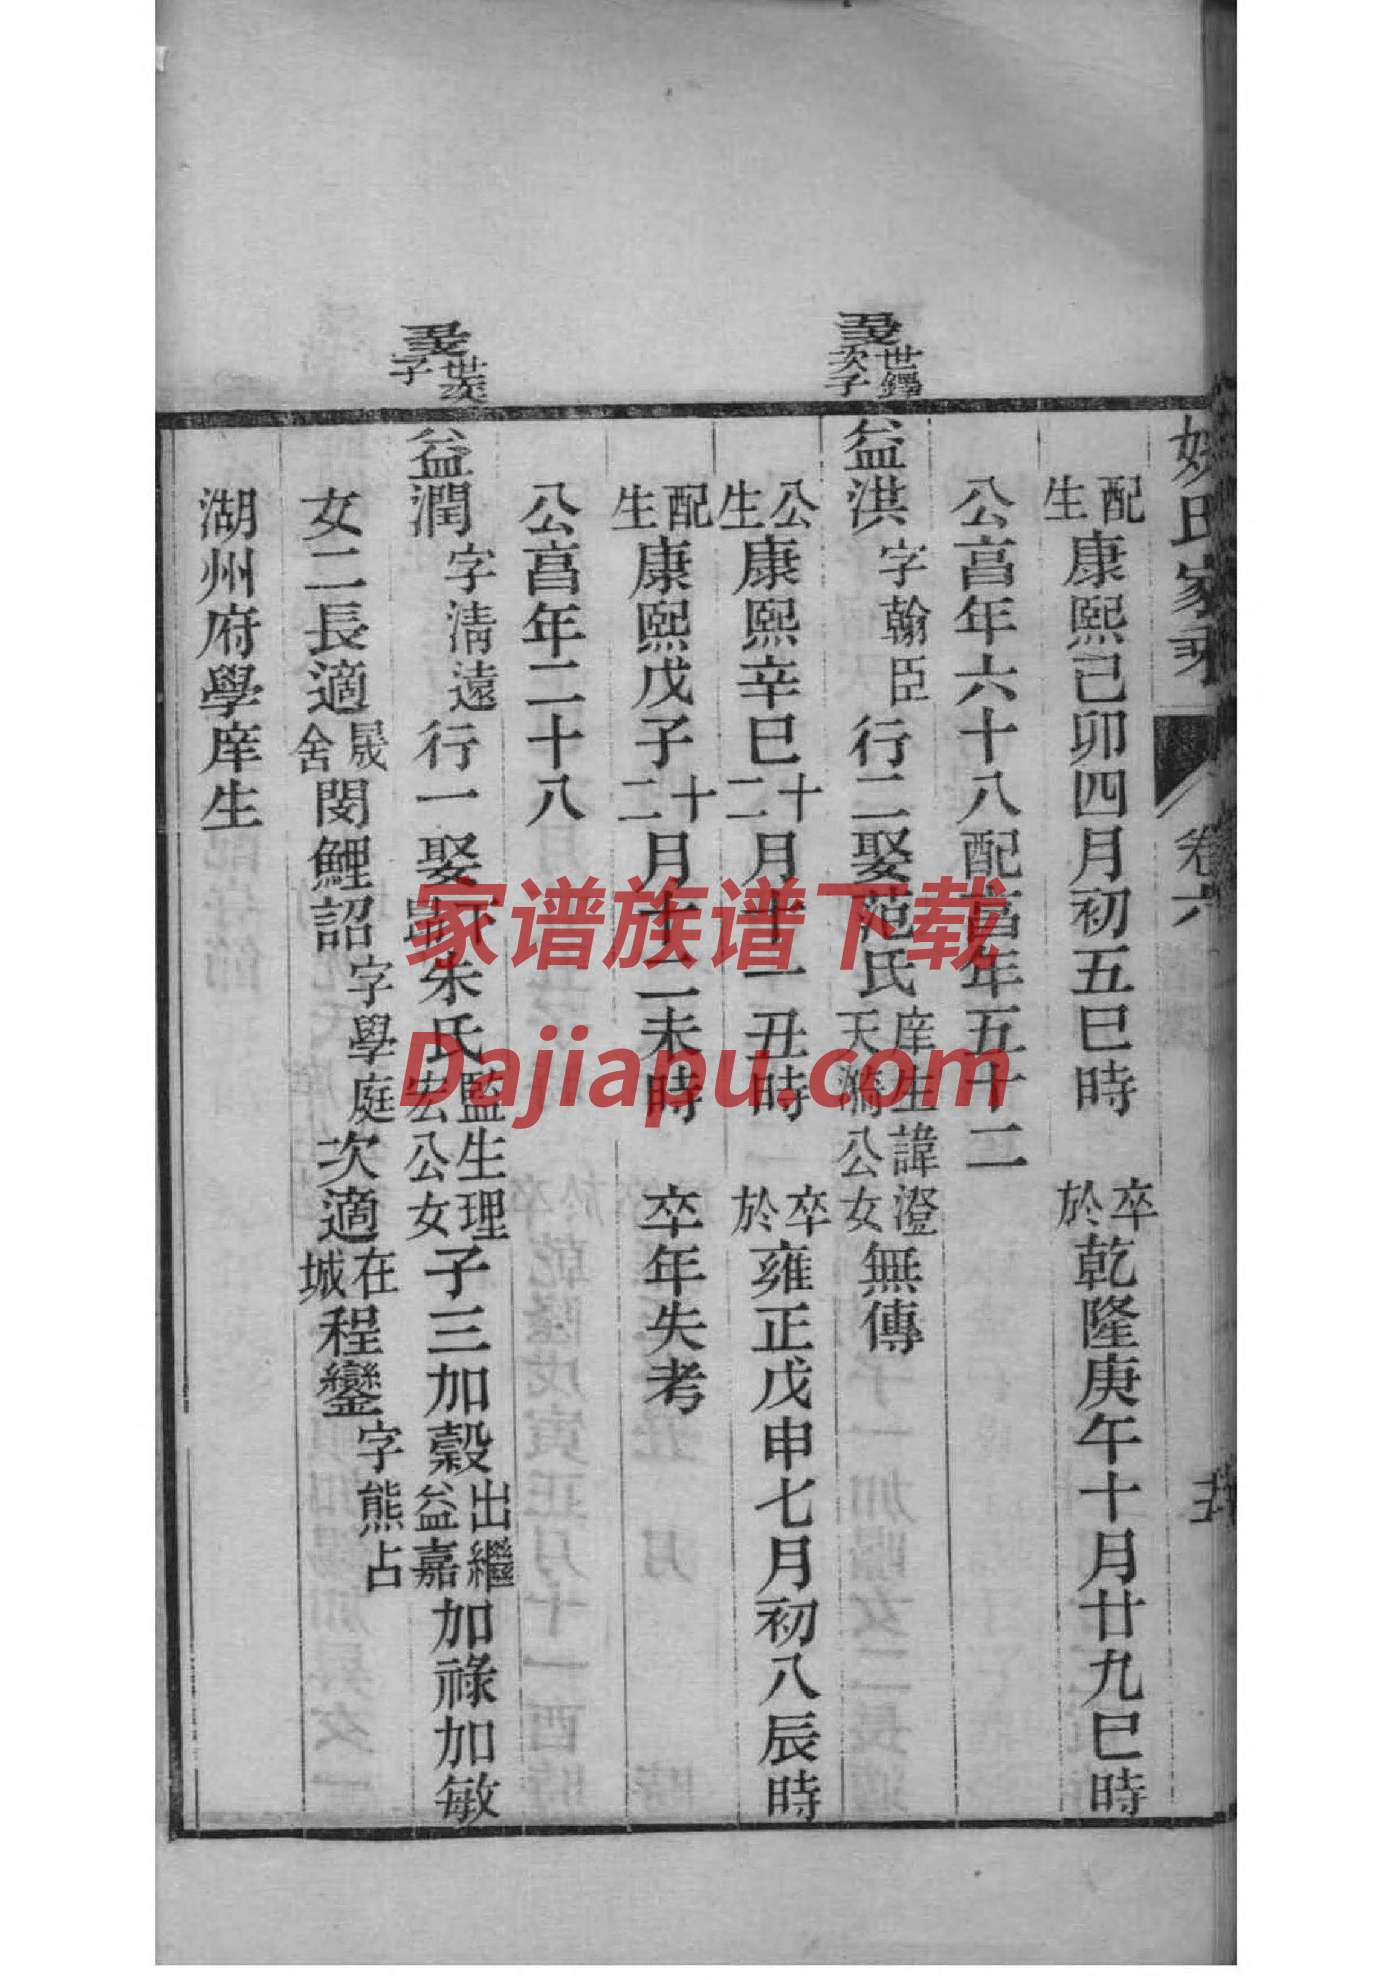 配生康熙己卯四月初五巳時 卒於乾隆庚午十月廿九巳時
公亯年六十八配亯年五十二
世鐸次子
益洪 字翰臣 行二娶范氏 庠生諱澄天瀚公女 無傳
公生康熙辛巳十二月十一丑時 卒於雍正戊申七月初八辰時
配生康熙戊子十二月十二未時 卒年失考
公亯年二十八
世 子
益潤 字淸遠 行一娶 朱氏 監生理宏公女 子三加榖 出繼益嘉 加祿加敏
女二長適 晟舍 閔鯉詔 字學庭 次適 在城 程鑾 字熊占
湖州府學庠生
氏家 卷六
家谱族谱下载
Dajiapu.com